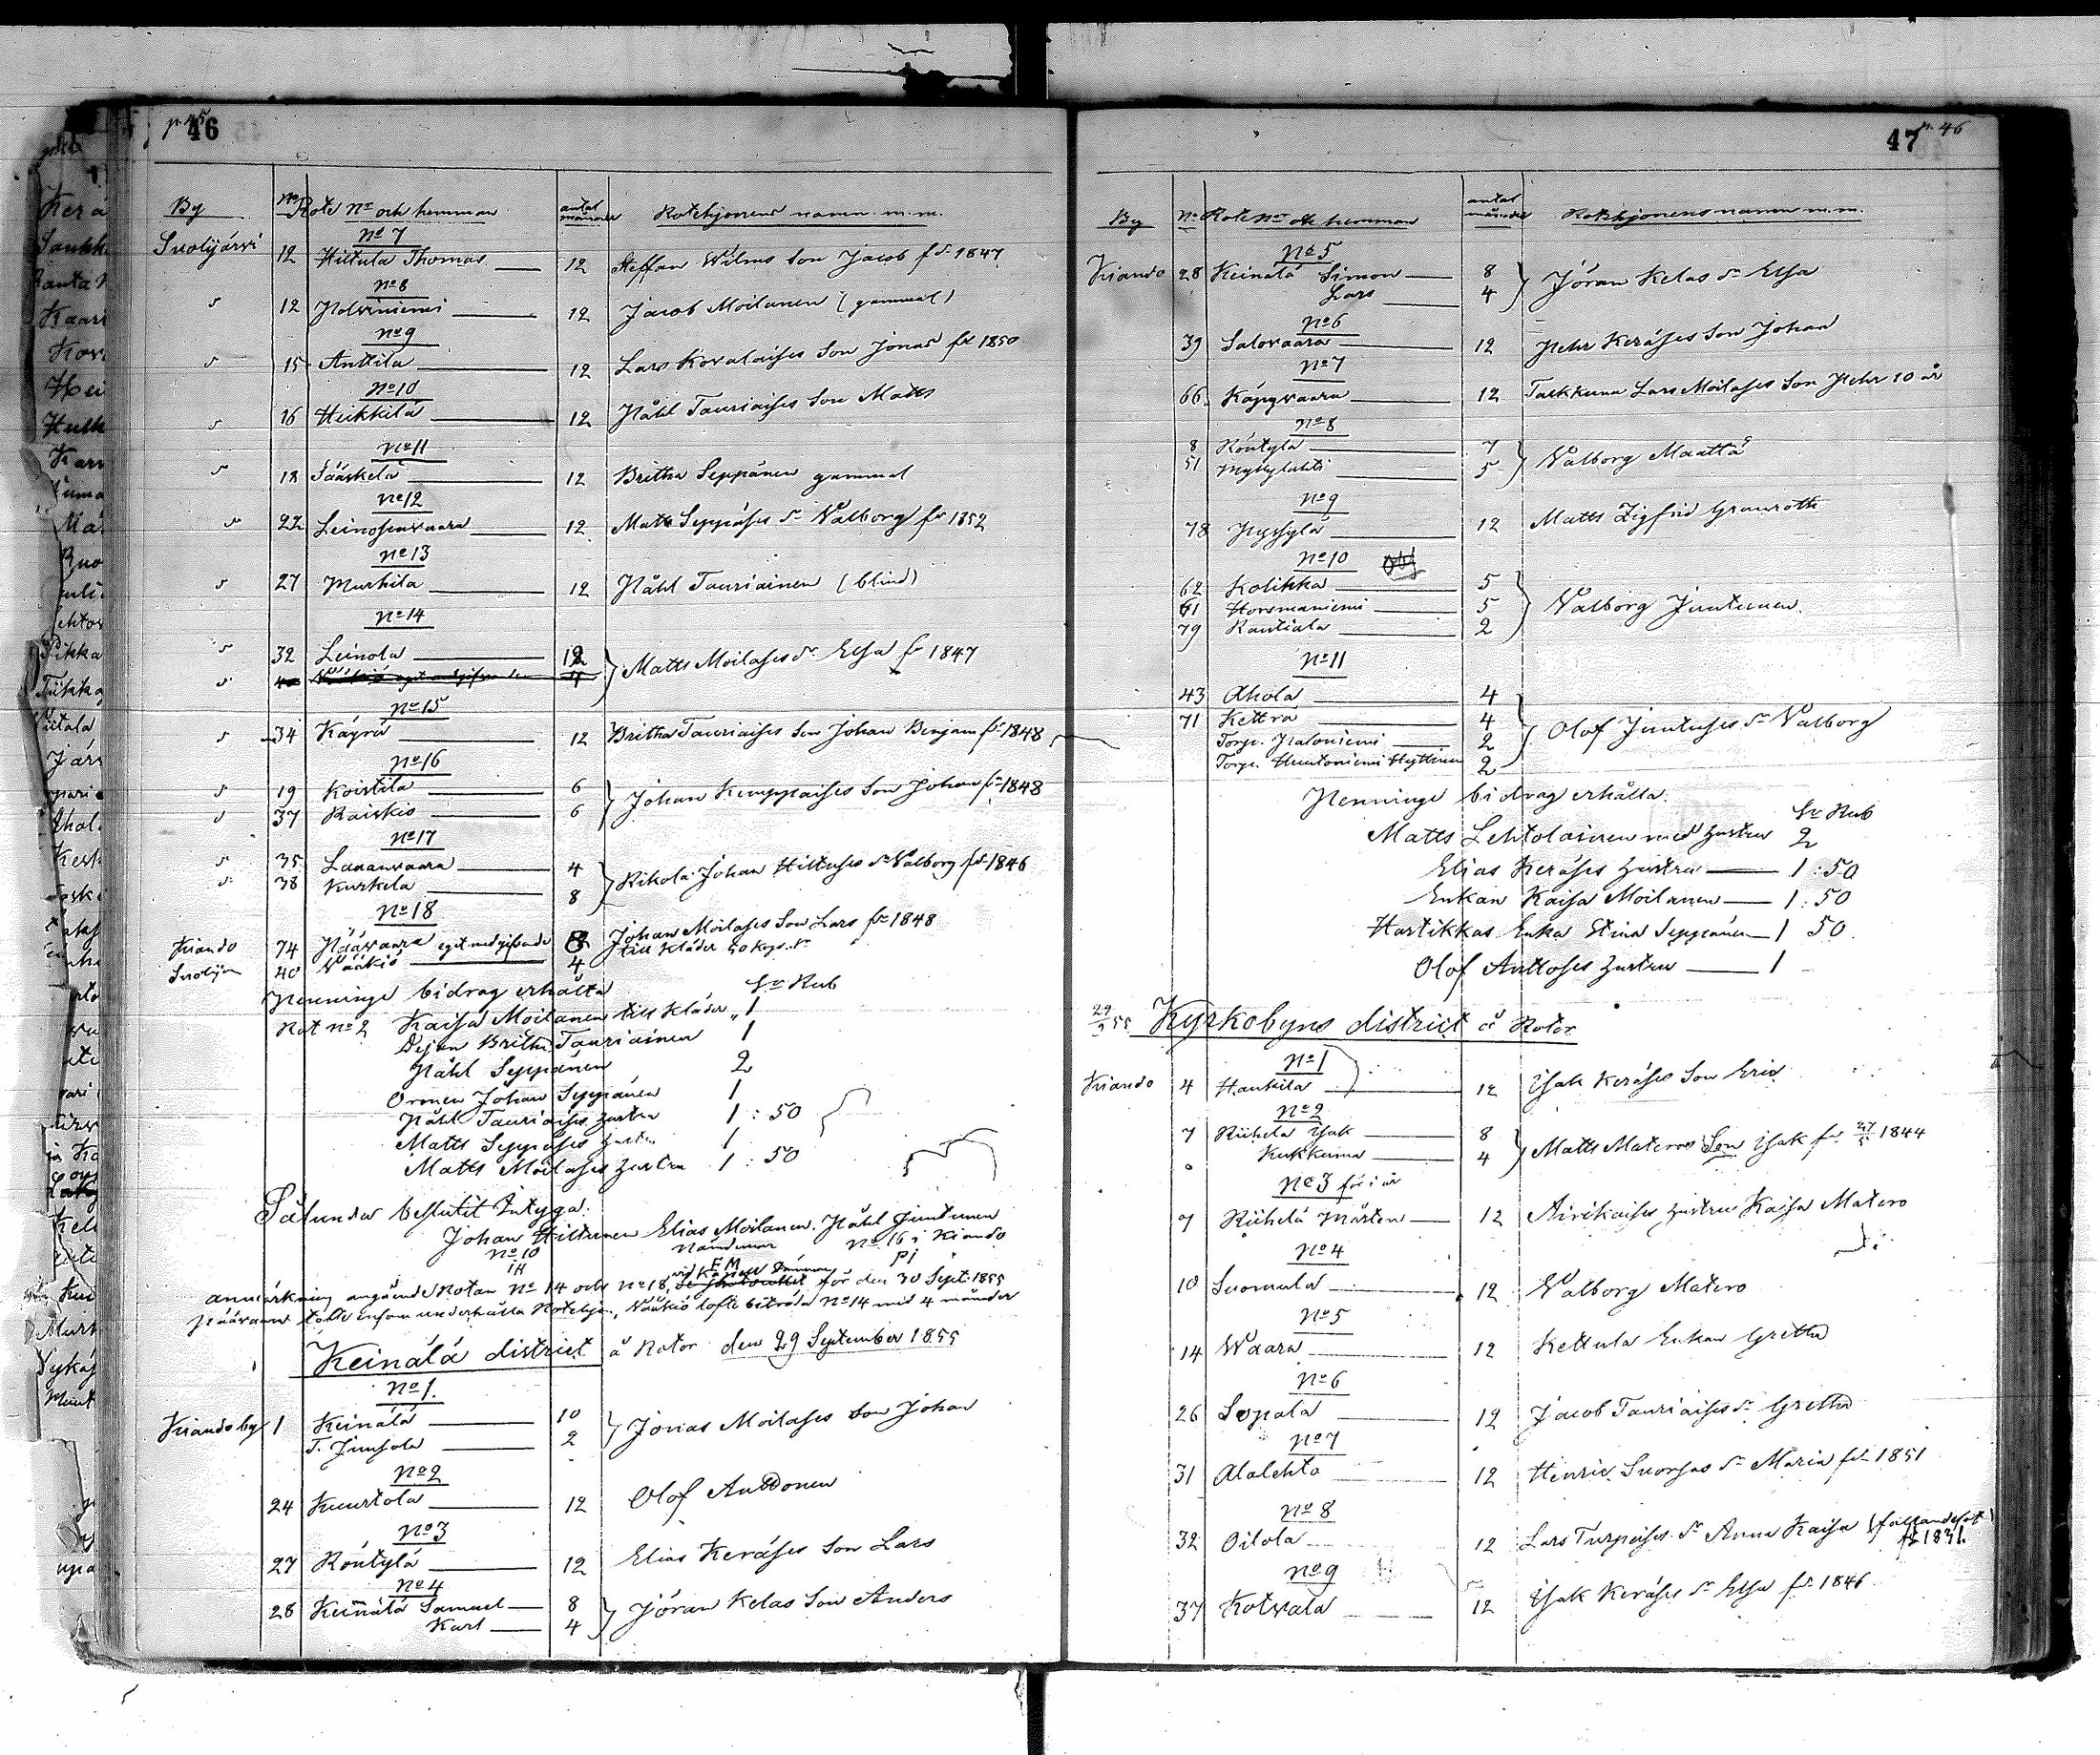 p. 45
46
By No Rote No och hemman antal månader Rotehjonens namn m.m.
No 7
Suolijärvi 12 Hiltula Thomas 12 Steffan Wilmi Son Jacob fd 1847
No 8
12 Polviniemi 12 Jacob Moilanen (gammal)
No 9
15 Anttila 12 Lars Kovalaises Son Jonas fd 1850
No 10
16 Heikkilä 12 Påhl Tauriaises Son Matts
No 11
18 Jääskelä 12 Britha Seppänen gammal
No 12
22 Leinosenvaara 12 Matts Seppäses dr Walborg fd 1852
No 13
27 Murhila 12 Påhl Tauriainen (blind)
No 14
32 Leinola 12 } Matts Moilases dr Elsa fd 1847
4
No 15
34 Käyrä 12 Britha Tauriaises Son Johan Benjam fd 1848
No 16
19 Koistila 6 } Johan Kemppaises Son Johan fd 1848
37 Raiskio 6
No 17
35 Lananvaara 4 } Rikola Johan Hiltuses dr Walborg fd 1846
38 Kurkela 8
No 18
Kiando 74 Päävaara eget medgifvande 8 Johan Moilases Son Lars fd 1848
till kläder 50 kop. Sr
Suolijär 40 Wääkiö 4
Penninge bidrag erhålla Sr Rub
Rot No 2 Kaisa Moilanen till kläder „ 1
Britha Tauriainen 1
Påhl Seppänen 2
Oronen Johan Seppänen 1
Påhl Tauriaises hustru 1 : 50
Matts Seppäses hustru 1
Matts Moilases hustru 1 : 50
Sålunda beslutit Intyga:
Johan Hiltunen Elias Moilanen Påhl Juntunen
No 10 Nämdeman No 16 i Kiando
IH EM PJ
anmärkning angående Rotan No 14 och No 18, för den 30 Sept. 1855
Päävaara löfte Ensam underhålla Rotehjon, Wääkiö lofte biträda No 14 med 4 månader
Keinälä district å Rotor den 29 September 1855
No 1.
Kiando by 1 Keinälä 10 } Jonas Moilases Son Johan
T. Junsola 2
No 2
24 Kuurtola 12 Olof Anttonen
No 3
27 Röntylä 12 Elias Keräses Son Lars
No 4
28 Keinälä Samuel 8 } Jöran Kelas Son Anders
Karl 4
47
p. 46
By No Rote No och hemman antal månader Rotehjonens namn m.m.
No 5
Kiando 28 Keinälä Simon 8 } Jöran Kelas dr Elsa
Lars 4
No 6
39 Salovaara 12 Pehr Keräses Son Johan
No 7
66 Käpyvaara 12 Taekkuna Lars Moilases Son Pehr 10 år
No 8
8 Röntylä 7 } Walborg Määttä
51 Myllylahti 5
No 9
78 Pyssylä 12 Matts Zigfrid Granroth
No 10
62 Kolikka 5 } Walborg Juntunen
61 Horsmaniemi 5
79 Rautiala 2
No 11
43 Ahola 4 } Olof Juntuses dr Walborg
71 Kettra 4
Torp. Paloniemi 2
Torp. Huutoniemi Hyttinen 2
Penninge bidrag erhålla:
Sr Rub
Matts Lehtolainen med hustru 2
Elias Keräses hustru 1 : 50
Enkan Kaisa Moilanen 1 : 50
Hartikkas Enka Stina Seppänen 1 50
Olof Anttoses hustru 1
29/9 55 Kyrkobyns district å Rotor
No 1
Kiando 4 Haukila 12 Isak Keräses Son Eric
No 2
7 Riihelä Isak 8 } Matts Materos Son Isak fd 27/5 1844
Kukkuma 4
No 3 för i år
7 Riihelä Mårten 12 Airikaises hustru Kaisa Matero
No 4
10 Suomula 12 Walborg Matero
No 5
14 Waara 12 Kettula Enkan Gretha
No 6
26 Sopala 12 Jacob Tauriaises dr Gretha
No 7
31 Alalehto 12 Henric Suorsas dr Maria fd 1851
No 8
32 Oilola 12 Lars Turpeises dr Anna Kaisa (fallandesot)
fd 1831
No 9
37 Kotvala 12 Isak Keräses dr Elsa fd 1846